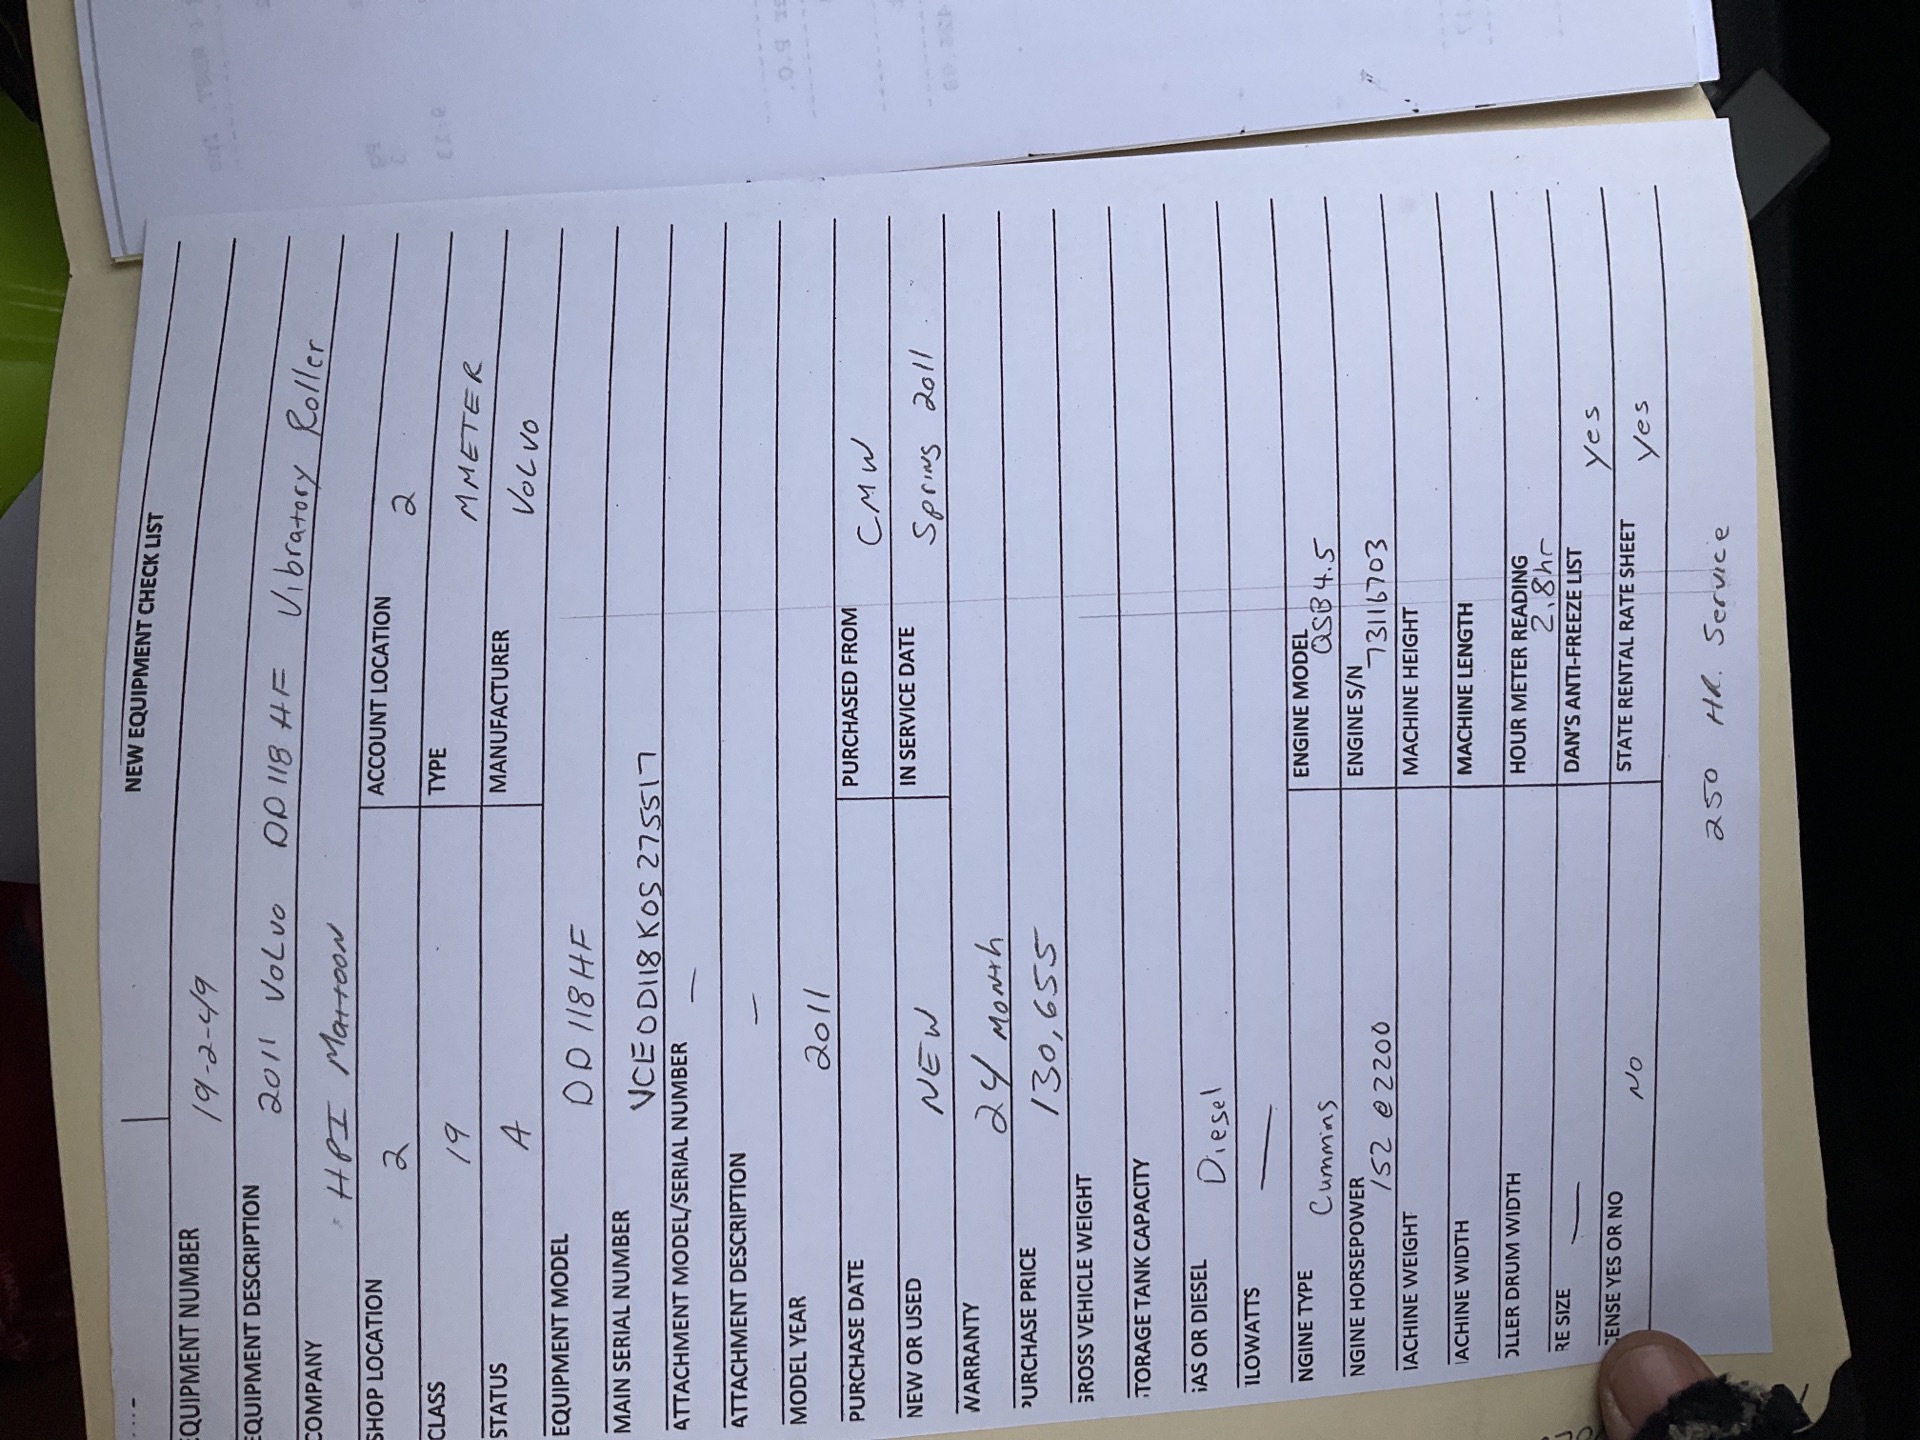 NEW EQUIPMENT CHECK LIST
EQUIPMENT NUMBER 19-2-49
EQUIPMENT DESCRIPTION 2011 VOLVO DD118HF Vibratory Roller
COMPANY HPI Mattoon
SHOP LOCATION 2 ACCOUNT LOCATION 2
CLASS 19 TYPE MMETER
STATUS A MANUFACTURER VOLVO
EQUIPMENT MODEL DD118HF
MAIN SERIAL NUMBER VCEDD118K0S275517
ATTACHMENT MODEL/SERIAL NUMBER —
ATTACHMENT DESCRIPTION —
MODEL YEAR 2011
PURCHASE DATE PURCHASED FROM CMW
NEW OR USED NEW IN SERVICE DATE Spring 2011
WARRANTY 24 Month
PURCHASE PRICE 130,655
GROSS VEHICLE WEIGHT
TORAGE TANK CAPACITY
GAS OR DIESEL Diesel
ILOWATTS —
NGINE TYPE Cummins ENGINE MODEL QSB4.5
NGINE HORSEPOWER 152 @2200 ENGINE S/N 73116703
ACHINE WEIGHT MACHINE HEIGHT
ACHINE WIDTH MACHINE LENGTH
OLLER DRUM WIDTH HOUR METER READING 2.8hr
RE SIZE — DAN'S ANTI-FREEZE LIST yes
ENSE YES OR NO NO STATE RENTAL RATE SHEET yes
250 HR. Service